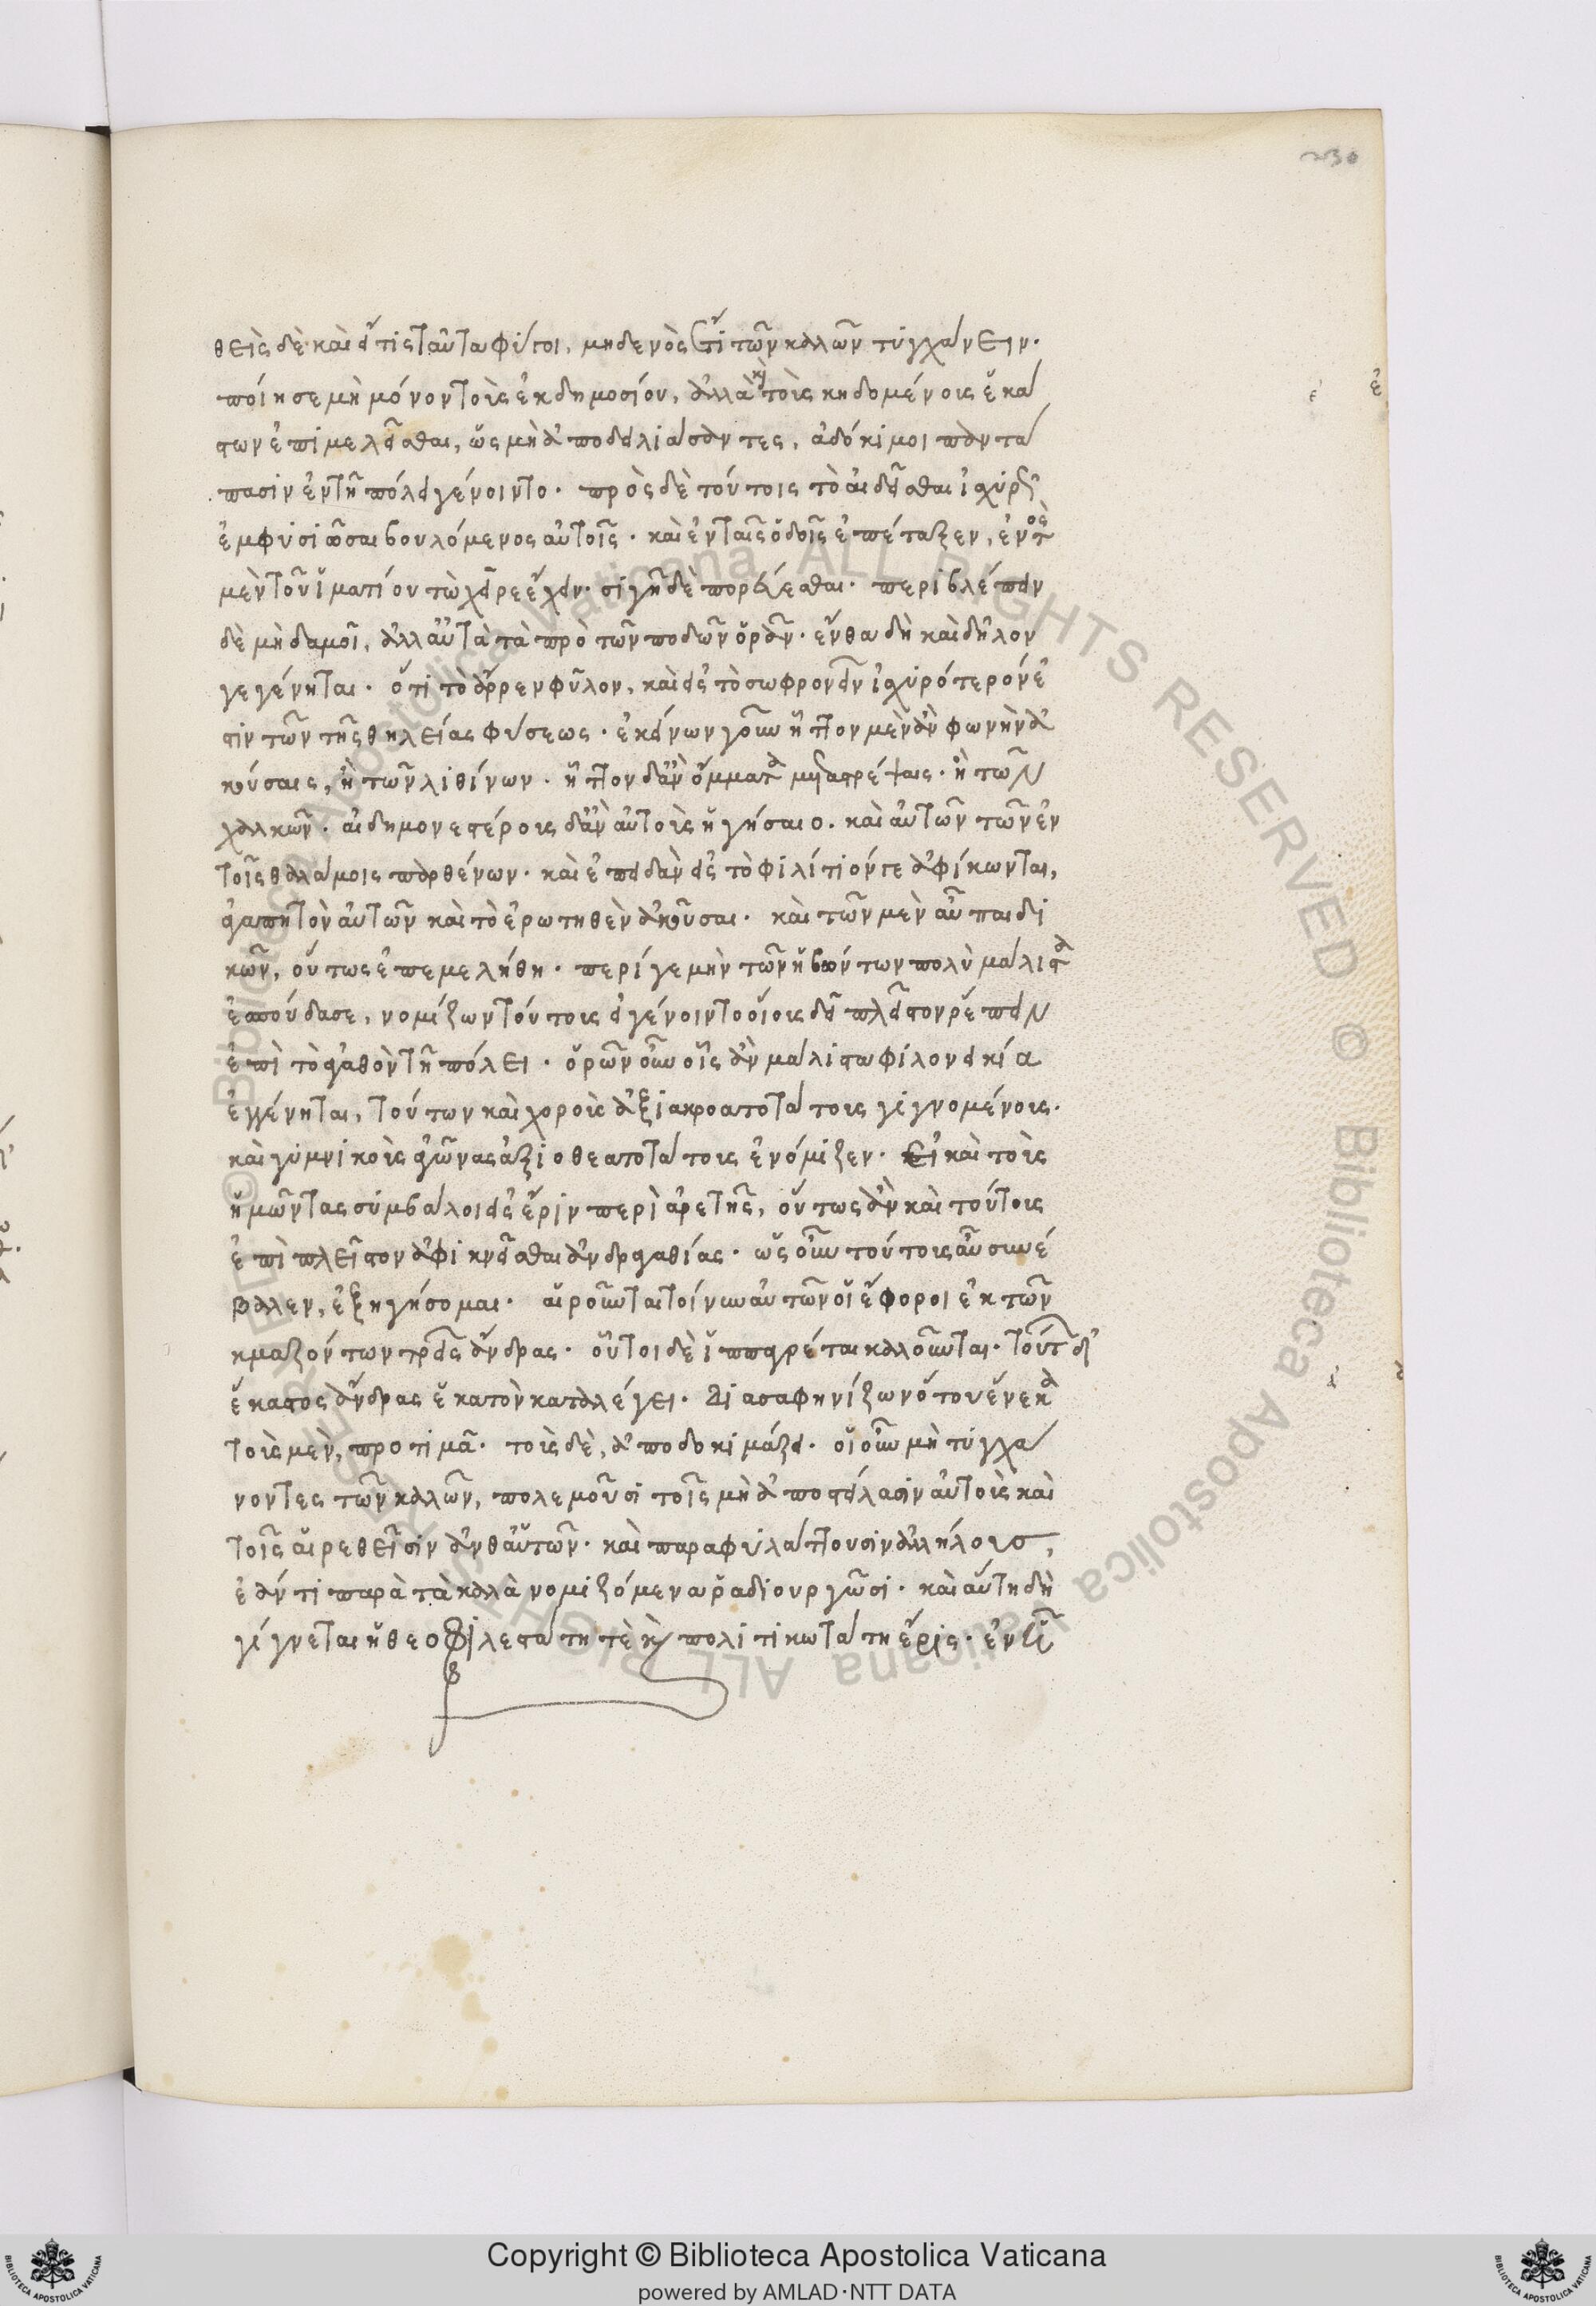 230
θεὶς δὲ καὶ εἴ τις ταῦτα φύγοι, μηδενὸς ἔτι τῶν καλῶν τυγχάνειν·
ποίησε μὴ μόνον τοὺς ἐκ δημοσίου, ἀλλὰ κỳ τοὺς κηδομένους ἑκά
στων ἐπιμελεῖσθαι, ὡς μὴ ἀποδειλιάσαντες, ἀδόκιμοι παντά
πασιν ἐν τῇ πόλει γένοιντο· πρὸς δὲ τούτοις τὸ αἰδεῖσθαι ἰσχυρῶς
ἐμφυσιῶσαι βουλόμενος αὐτοῖς· καὶ ἐν ταῖς ὁδοῖς ἐπέταξεν, ἐντὸς
μὲν τοῦ ἱματίου τὼ χεῖρε ἔχειν· σιγῇ δὲ πορεύεσθαι· περιβλέπειν
δὲ μηδαμοῖ, ἀλλ' αὐτὰ τὰ πρὸ τῶν ποδῶν ὁρᾶν· ἔνθα δὴ καὶ δῆλον
γεγένηται· ὅτι τὸ ἄρρεν φῦλον, καὶ εἰς τὸ σωφρονεῖν ἰσχυρότερόν ἐ
στιν τῶν τῆς θηλείας φύσεως· ἐκείνων γοῦν ἧττον μὲν ἂν φωνὴν ἀ
κούσαις, ἢ τῶν λιθίνων· ἧττον δ' ἂν ὄμματα μεταστρέψαις· ἢ τῶν
χαλκῶν· αἰδημονεστέρους δ' ἂν αὐτοὺς ἡγήσαιο· καὶ αὐτῶν τῶν ἐν
τοῖς θαλάμοις παρθένων· καὶ ἐπειδὰν εἰς τὸ φιλίτιόν γε ἀφίκωνται,
ἀγαπητὸν αὐτῶν καὶ τὸ ἐρωτηθὲν ἀκοῦσαι· καὶ τῶν μὲν αὖ παιδι
κῶν, οὕτως ἐπεμελήθη· περί γε μὴν τῶν ἡβώντων πολὺ μάλιστα
ἐσπούδασε, νομίζων τούτους εἰ γένοιντο οἵους δεῖ πλεῖστον ῥέπειν
ἐπὶ τὸ ἀγαθὸν τῇ πόλει· ὁρῶν οὖν οἷς ἂν μάλιστα φιλονεικία
ἐγγένηται, τούτων καὶ χοροὺς ἀξιακροατοτάτους γιγνομένους·
καὶ γυμνικοὺς ἀγῶνας ἀξιοθεατοτάτους ἐνόμιζεν· εἰ καὶ τοὺς
ἡμῶντας συμβάλοι εἰς ἔριν περὶ ἀρετῆς, οὕτως ἂν καὶ τούτους
ἐπὶ πλεῖστον ἀφικνεῖσθαι ἀνδραγαθίας· ὡς οὖν τούτους αὖ συνέ
βαλεν, ἐξηγήσομαι· αἱροῦνται τοίνυν αὐτῶν οἱ ἔφοροι ἐκ τῶν
κμαζόντων τρεῖς ἄνδρας· οὗτοι δὲ ἱππαγρέται καλοῦνται· τούτων δ'
ἕκαστος ἄνδρας ἑκατὸν καταλέγει· διασαφηνίζων ὅτου ἕνεκα
τοὺς μὲν, προτιμᾶ· τοὺς δὲ, ἀποδοκιμάζει· οἱ οὖν μὴ τυγχά
νοντες τῶν καλῶν, πολεμοῦσι τοῖς μὴ ἀποστείλασιν αὐτοὺς καὶ
τοῖς αἱρεθεῖσιν ἀνθ' αὑτῶν· καὶ παραφυλάττουσιν ἀλλήλους,
ἐάν τι παρὰ τὰ καλὰ νομιζόμενα ῥαδιουργῶσι· καὶ αὕτη δὴ
γίγνεται ἡ θεοφιλεστάτη τὲ κỳ πολιτικωτάτη ἔρις· ἐν ᾗ
Copyright © Biblioteca Apostolica Vaticana
powered by AMLAD·NTT DATA